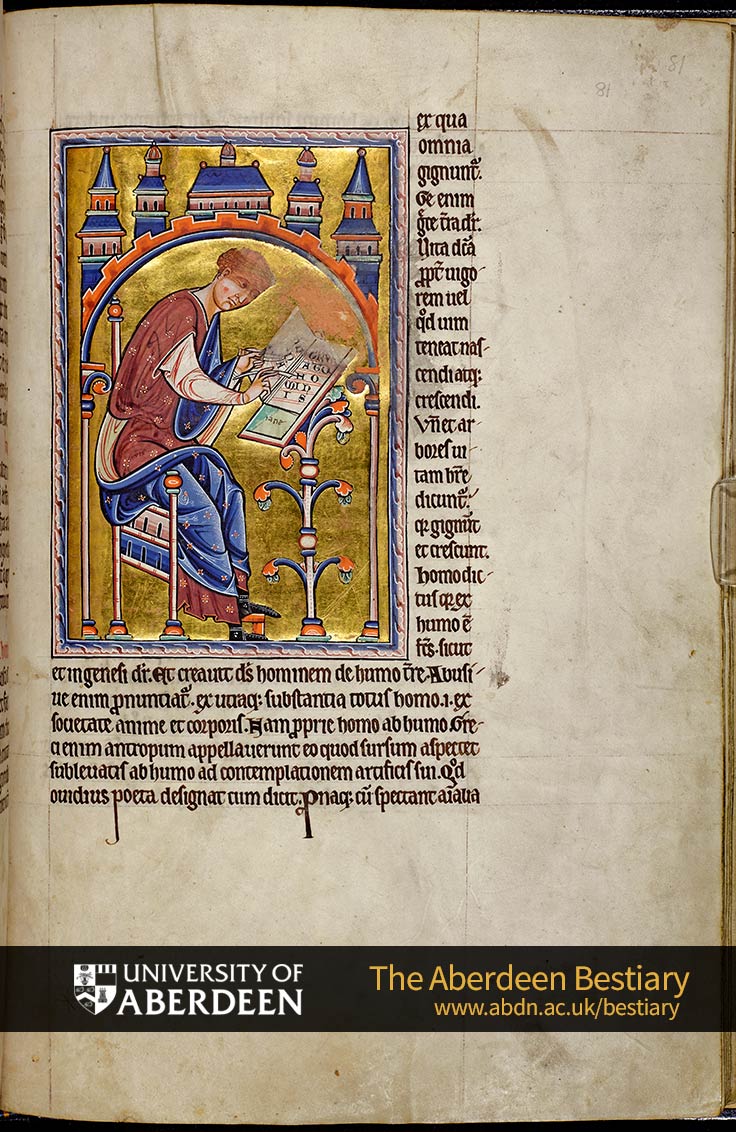 81
81
ex qua
omnia
gignunt̃.
Ge enim
g̃ce t̃ra dr̃.
Uita dc̃a
ꝓpt̃ uigo-
rem uel
qͦd uim
teneat nas-
cendi atqꝫ
crescendi.
Vn̄ et ar-
bores ui-
tam hr̄e
dicunt̃.
qꝛ gignũt
et crescunt.
Homo dic-
tus qꝛ ex
humo ē
fc̃s. sicut
et in genesi dr̃. Et creauit ds̃ hominem de humo t̃re. Abusi-
ue enim ꝓnunciat̃. ex utraqꝫ substantia totus homo .i. ex
societate anime et corporis. Nam ꝓprie homo ab humo. Gre-
ci enim antropum appellauerunt eo quod sursum aspectet
subleuatis ab humo ad contemplationem artificis sui. Qͦd
ouidius poeta designat cum dicit. Pnaqꝫ cũ spectant aĩalia
UNIVERSITY OF
ABERDEEN
The Aberdeen Bestiary
www.abdn.ac.uk/bestiary